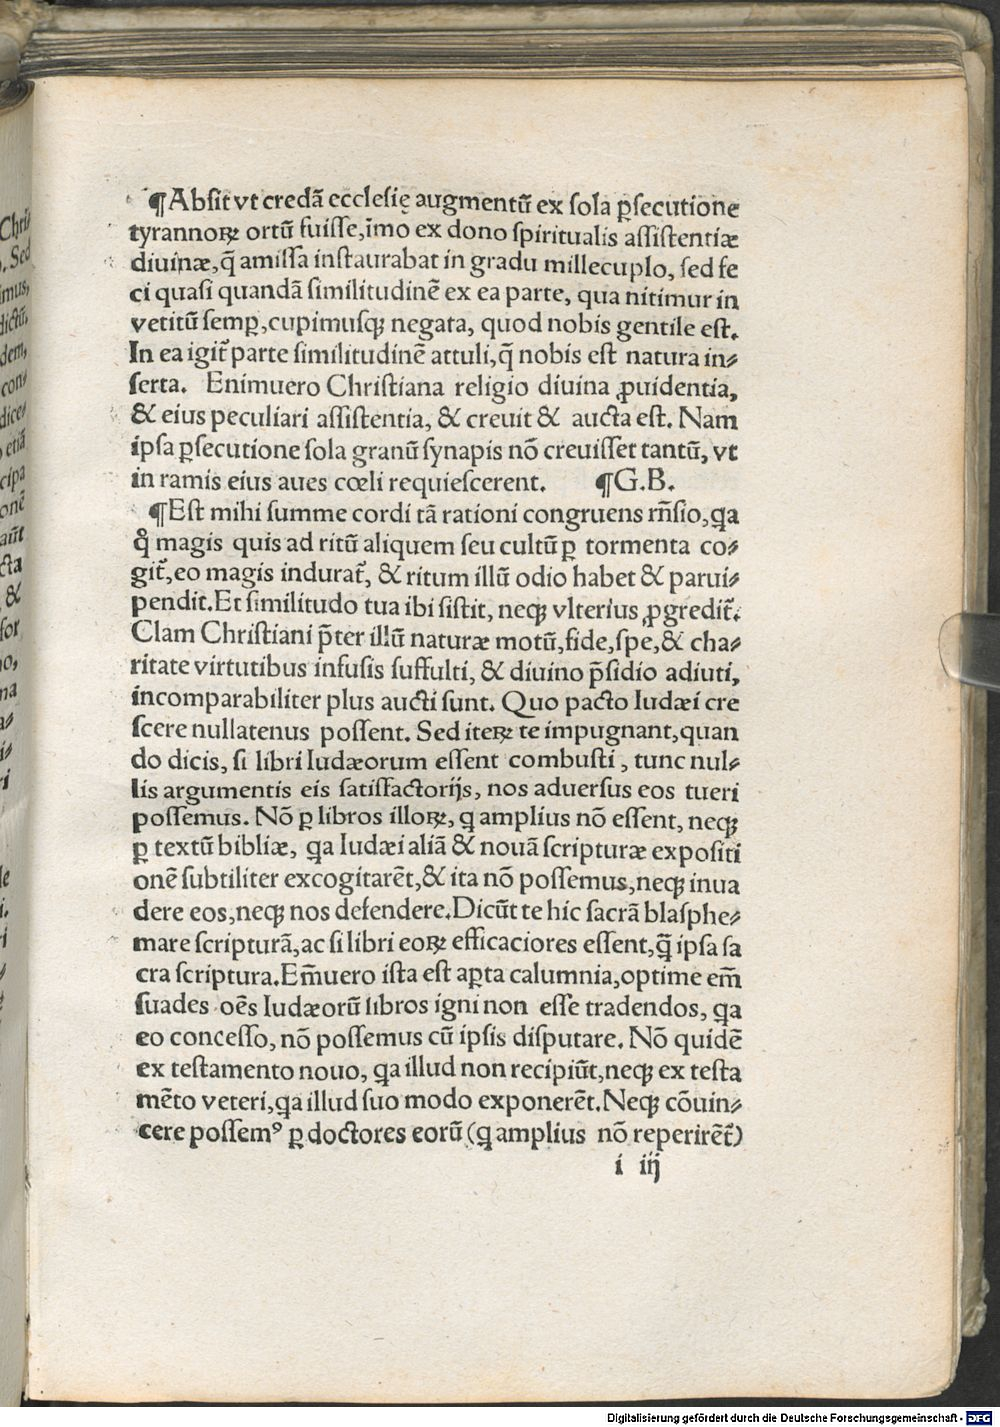 ¶Absit vt credã ecclesię augmentũ ex sola ꝑsecutione
tyrannoꝝ ortũ fuisse, ĩmo ex dono spiritualis assistentiæ
diuinæ, q̃ amissa instaurabat in gradu millecuplo, sed fe
ci quasi quandã similitudinẽ ex ea parte, qua nitimur in
vetitũ semꝑ, cupimusqꝫ negata, quod nobis gentile est.
In ea igit᷑ parte similitudinẽ attuli, q̃ nobis est natura in⸗
serta. Enimuero Christiana religio diuina ꝓuidentia,
& eius peculiari assistentia, & creuit & aucta est. Nam
ipsa ꝑsecutione sola granũ synapis nõ creuisset tantũ, vt
in ramis eius aues cœli requiescerent. ¶G.B.
¶Est mihi summe cordi tã rationi congruens rñsio, qa
q̊ magis quis ad ritũ aliquem seu cultũ ꝑ tormenta co⸗
git᷑, eo magis indurat᷑, & ritum illũ odio habet & parui⸗
pendit. Et similitudo tua ibi sistit, neqꝫ vlterius ꝓgredit᷑.
Clam Christiani p̃ter illũ naturæ motũ, fide, spe, & cha⸗
ritate virtutibus infusis suffulti, & diuino p̃sidio adiuti,
incomparabiliter plus aucti sunt. Quo pacto Iudæi cre
scere nullatenus possent. Sed iteꝝ te impugnant, quan
do dicis, si libri Iudæorum essent combusti, tunc nul⸗
lis argumentis eis satisfactorijs, nos aduersus eos tueri
possemus. Nõ ꝑ libros illoꝝ, q amplius nõ essent, neqꝫ
ꝑ textũ bibliæ, qa Iudæi aliã & nouã scripturæ expositi
onẽ subtiliter excogitarẽt, & ita nõ possemus, neqꝫ inua
dere eos, neqꝫ nos defendere. Dicũt te hic sacrã blasphe⸗
mare scripturã, ac si libri eoꝝ efficaciores essent, q̃ ipsa sa
cra scriptura. Em̃uero ista est aꝑta calumnia, optime em̃
suades oẽs Iudæorũ libros igni non esse tradendos, qa
eo concesso, nõ possemus cũ ipsis disputare. Nõ quidẽ
ex testamento nouo, qa illud non recipiũt, neqꝫ ex testa
mẽto veteri, qa illud suo modo exponerẽt. Neqꝫ cõuin⸗
cere possemꝰ ꝑ doctores eorũ (q amplius nõ reperirẽt᷑)
i iij
Chri⸗
. Sed
imus,
dictũ,
dem,
con⸗
dice⸗
etiã
cipa
onẽ
aũt
cta
&
for
no,
na
Digitalisierung gefördert durch die Deutsche Forschungsgemeinschaft - DFG